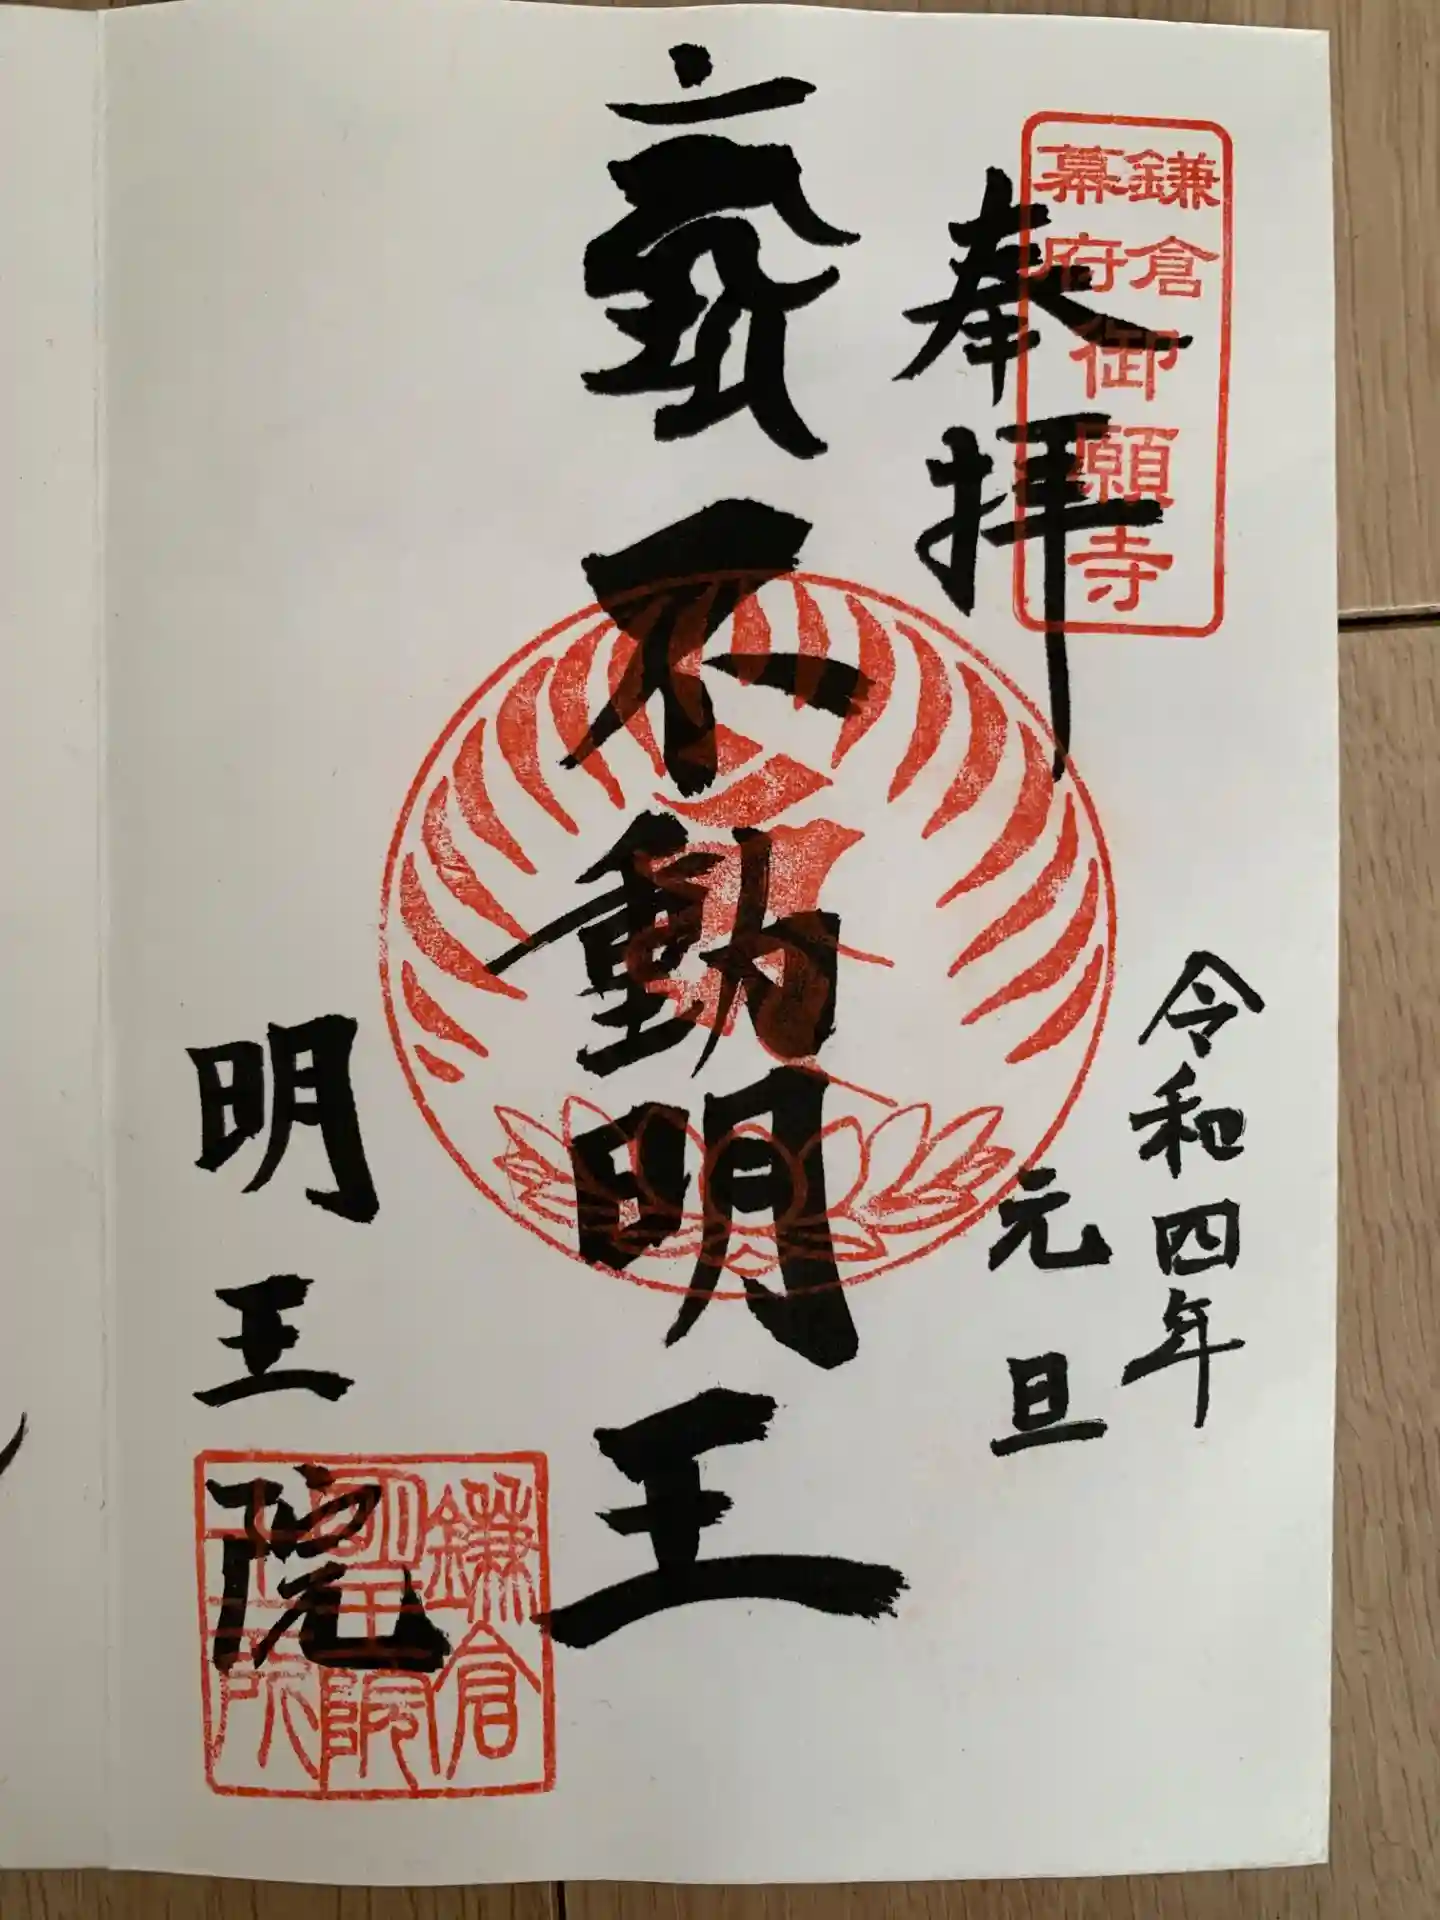 鎌倉
幕府
御願寺
奉拝
令和四年
元旦
不動明王
明王院
鎌倉
明王院